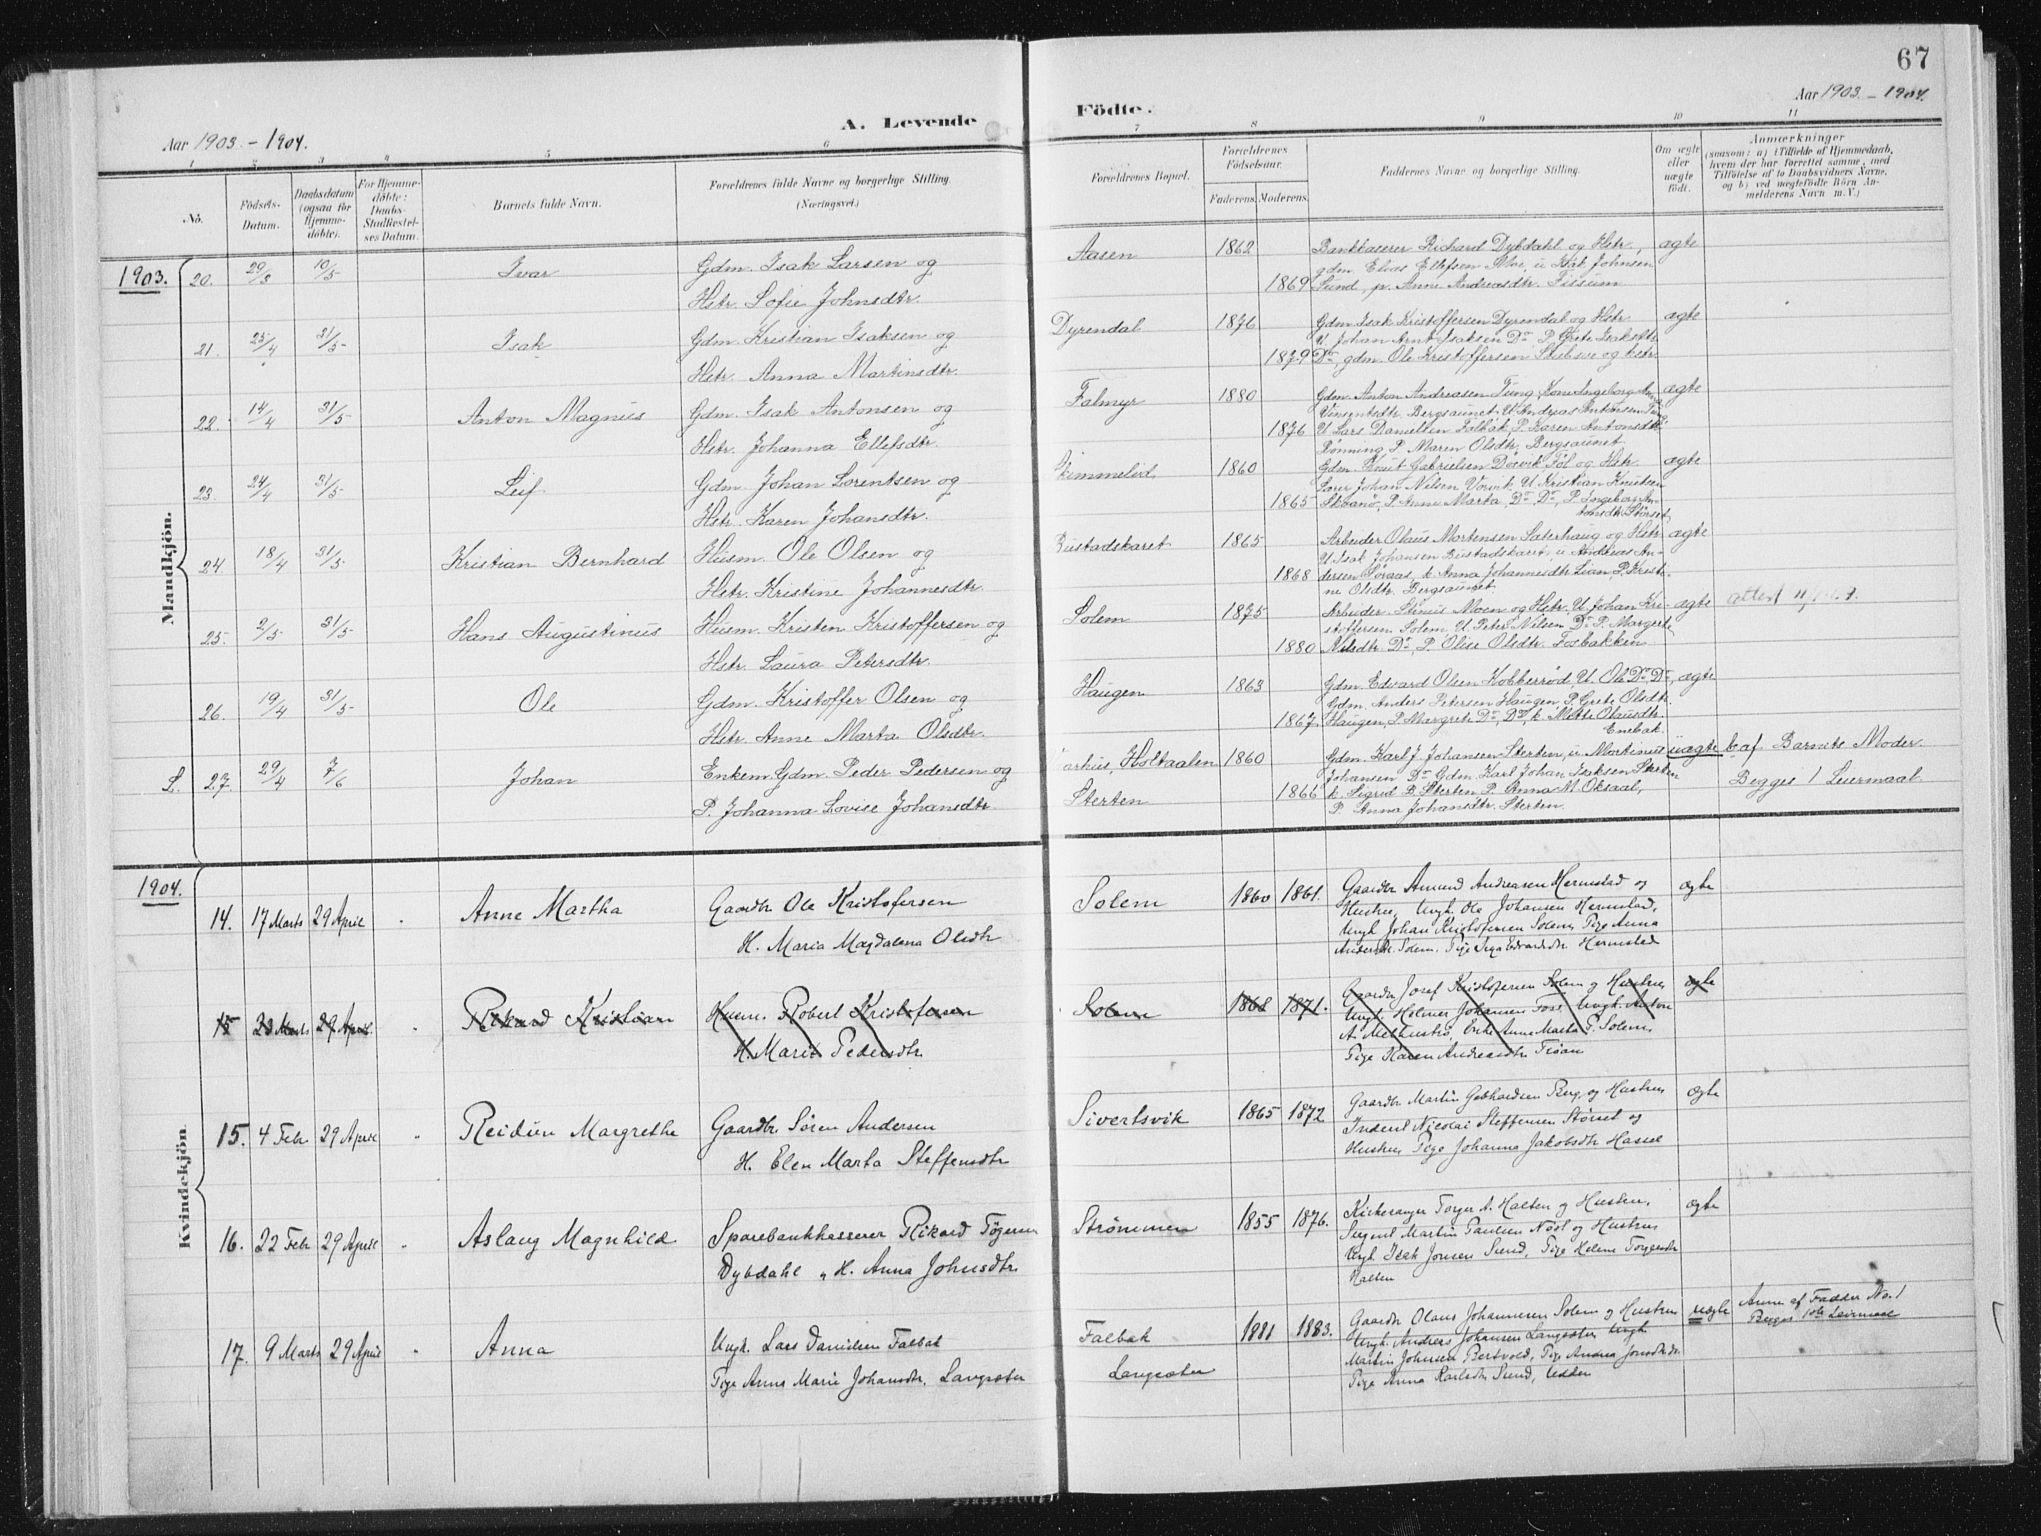 67
Aar 1903 - 1904.
A. Levende
Födte.
Aar 1903 - 1904.
1 2 3 4 5 6 7 8 9 10 11
No.
Födsels-Datum.
Daabsdatum (ogsaa for Hjemmedöbte).
For Hjemmedöbte: Daabs-Stadfestelses Datum.
Barnets fulde Navn.
Forældrenes fulde Navne og borgerlige Stilling.
(Næringsvei.)
Forældrenes Bopæl.
Forældrenes Födselsaar.
Faderens. Moderens.
Faddernes Navne og borgerlige Stilling.
Om ægte eller uægte födt.
Anmærkninger
(saasom: a) i Tilfælde af Hjemmedaab, hvem der har forrettet samme, med Tilföielse af to Daabsvidners Navne, og b) ved uægtefödte Börn Anmelderens Navn m. V.)
Mandkjön.
1903.
20. 29/3 10/5 Ivar Gdm. Isak Larsen og Aasen 1862 Bankkasserer Richard Dybdahl og Hstr, ægte
gdm. Elias Ellefsen Moe, u Isak Johnsen
Hstr. Sofie Johnsdtr. 1869 Sund, p. Anne Andreasdtr. Fissum
21. 25/4 31/5 Isak Gdm. Kristian Isaksen og Dyrendal 1876 Gdm. Isak Kristoffersen Dyrendal og Hstr. ægte
U. Johan Arnt Isaksen Do P. Grete Isaksdtr
Hstr. Anna Martinsdtr. 1879 Do, gdm. Ole Kristoffersen og hstr.
22. 14/4 31/5 Anton Magnus Gdm. Isak Antonsen og Falmyr 1880 Gdm. Anton Andreasen Tung, Kone Ingeborg Anna ægte
Vinsentsdtr. Bergsaunet. U. Andreas Antonsen Tung
Hstr. Johanna Ellefsdtr. 1876 U. Lars Danielsen Falbak P. Karen Antonsdtr
Rønning P. Maren Olsdtr, Bergsaunet
23. 24/4 31/5 Leif Gdm. Johan Lorentsen og 1860 Gdm. Knut Gabrielsen Døsvik og Hstr. ægte
Johan Nilsen Vorvik U. Kristian Knutsen
Hstr. Karen Johansdtr. 1865 P. Anne Marta Do Do, P. Ingeborg An-
tonsdtr Størset
24. 18/4 31/5 Kristian Bernhard Husm. Ole Olsen og Bustadskaret 1865 Arbeider Olaus Mortensen Sæterhaug og Hstr. ægte
U. Isak Johansen Bustadskaret, u Andreas An-
Hstr. Kristine Johannesdtr. 1868 dersen Søraas, k. Anna Johannesdtr Lian P. Kristi-
ne Olsdtr. Bergsaunet.
25. 2/5 31/5 Hans Augustinus Husm. Kristen Kristoffersen og Solem 1875 Arbeider Moen og Hstr. U. Johan Kri- ægte
stoffersen Solem U. Peter Nilsen Do P. Margrete
Hstr. Laura Petersdtr. 1880 Nilsdtr. Do, P. Olise Olsdtr. Fosbakken
26. 19/4 31/5 Ole Gdm. Kristoffer Olsen og Haugen 1863 Gdm. Edvard Olsen Kobberrød, U. Ole Do Do, ægte
Gdm. Anders Petersen Haugen P. Grete Olsdtr.
Hstr. Anne Marta Olsdtr. 1867 Haugen, P. Margrete Do, Do, k. Mette Olausdtr.
Enebak.
L. 27. 29/4 7/6 Johan Enkem. Gdm. Peder Pedersen og Holtaalen 1860 Gdm. Karl J. Johansen Sterten, u. Martinus uægte b. af Barnets Moder.
Johansen Do Gdm. Karl Johan Isaksen Sterten
P. Johanna Lovise Johansdtr. Sterten 1866 k. Sigrid B. Sterten P. Anna M. Oksaal, Begges 1 Leiermaal.
P. Anna Johansdtr. Sterten.
Kvindekjön.
1904.
14. 17 Marts 29 April " Anne Martha Gaardbr Ole Kristofersen Solem 1860 1861. Gaardbr Amund Andreasen Hermstad og ægte
Hustru, Ungk. Ole Johansen Hermstad,
H. Maria Magdalena Olsdtr Ungk Johan Kristofersen Solem, Pige Anna
Andersdtr. Solem, Pige Inga Edvardsdtr Hermstad
15 23 Marts 29 April " Rikard Kristian Husm. Robert Kristofersen Solem 1868 1871. Gaardbr Josef Kristofersen Solem og Hustru, ægte
Ungk. Helmer Johansen Foss, Ungk. Anton
H. Marie Pedersdtr A. Melhustrø, Enke Anne Marta P. Solem,
Pige Karen Andreasdtr Trøan
15. 4 Febr 29 April " Reidun Margrethe Gaardbr Søren Andersen Sivertsvik 1865 1872 Gaardbr Martin Gebhardsen Berg og Hustru, ægte
Nicolai Steffensen Størset og
H. Elen Marta Steffensdtr Hustru Pige Johanna Jakobsdtr Hassel
16. 22 Febr 29 April " Aslaug Magnhild Sparebankkasserer Rikard Tøgersen Strømmen 1855 1876. Kirkesanger Torger A. Halten og Hustru, ægte
Sergent Martin Paulsen Nøst og Hustru
Dybdahl " H. Anna Johnsdtr. Ungk. Isak Jonsen Sund, Pige Helene Torgersdtr
Halten
17. 9 Marts 29 April " Anna Ungk. Lars Danielsen Falbak Falbak 1881 1883. Gaardbr Olaus Johannesen Solem og Hustru uægte Anm. af Fadder No. 1
Ungk. Andreas Johansen Langsæter, Ungk. Begges 1ste Leiermaal
Pige Anne Marie Johansdtr. Langsæter Langsæter Martin Johnsen Bertvold, Pige Andrea Jonsdtr do.
Pige Anna Karlsdtr Sund, Udden